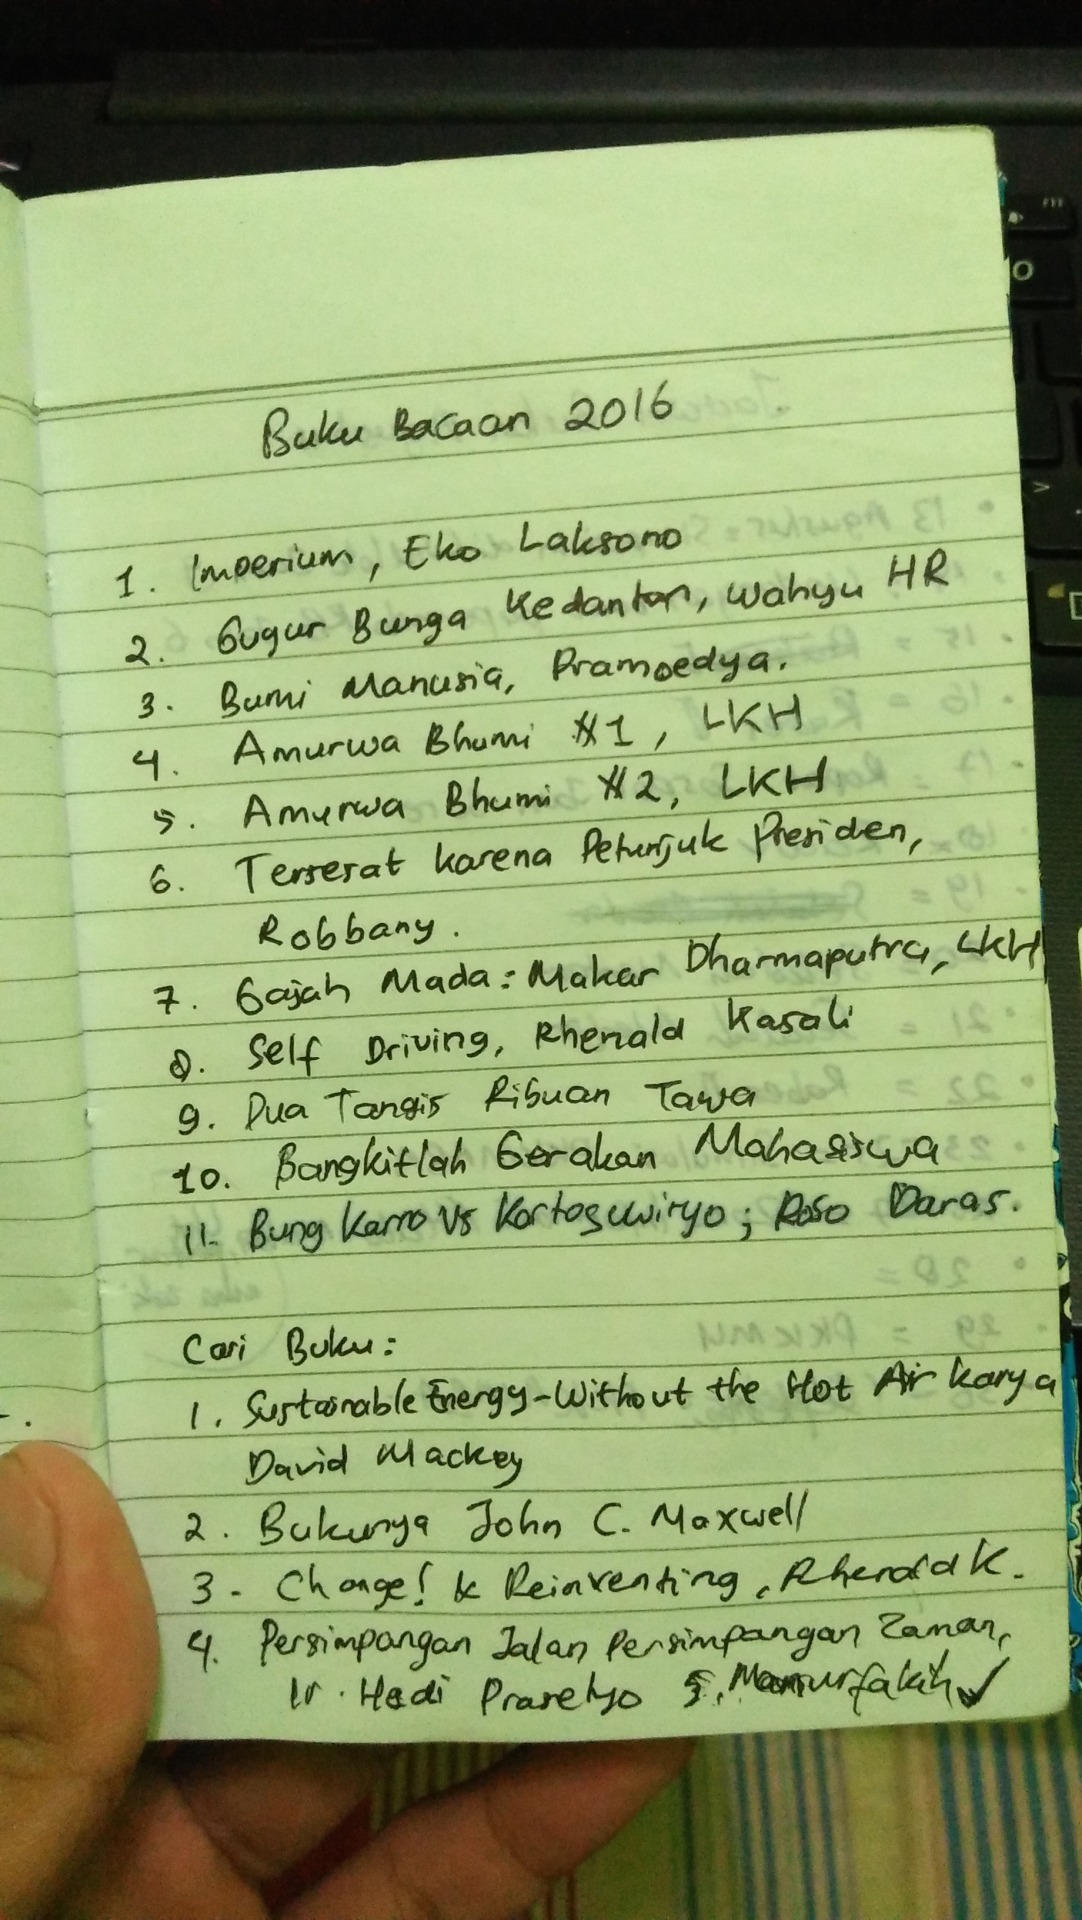 Buku Bacaan 2016
1. Imperium, Eko Laksono
2. Gugur Bunga Kedaton, Wahyu HR
3. Bumi Manusia, Pramoedya.
4. Amurwa Bhumi #1, LKH
5. Amurwa Bhumi #2, LKH
6. Terserat karena Petunjuk Presiden,
Robbany.
7. Gajah Mada: Makar Dharmaputra, LKH
8. Self Driving, Rhenald Kasali
9. Dua Tangis Ribuan Tawa
10. Bangkitlah Gerakan Mahasiswa
11. Bung Karno Vs Kartosuwiryo; Roso Daras.
Cari Buku:
1. Sustainable Energy-Without the Hot Air karya
David Mackey
2. Bukunya John C. Maxwell
3- Change! & Reinventing, Rhenald K.
4. Persimpangan Jalan Persimpangan Zaman,
Ir. Hadi Prasetyo 5. fakih ✓